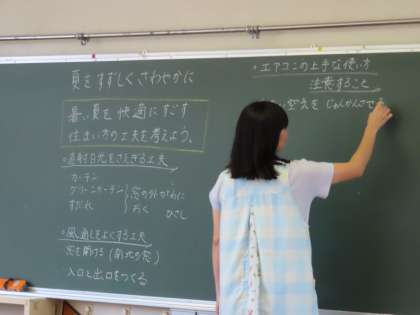 夏をすずしくさわやかに
暑い夏を快適にすごす
住まい方の工夫を考えよう。
◦直射日光をさえぎる工夫
カーテン
グリーンカーテン
すだれ
窓の外がわに
おく
ひさし
◦風通しをよくする工夫
窓を開ける(南北の窓)
入口と出口をつくる
◦エアコンの上手な使い方
注意すること
空気を じゅんかんさせ